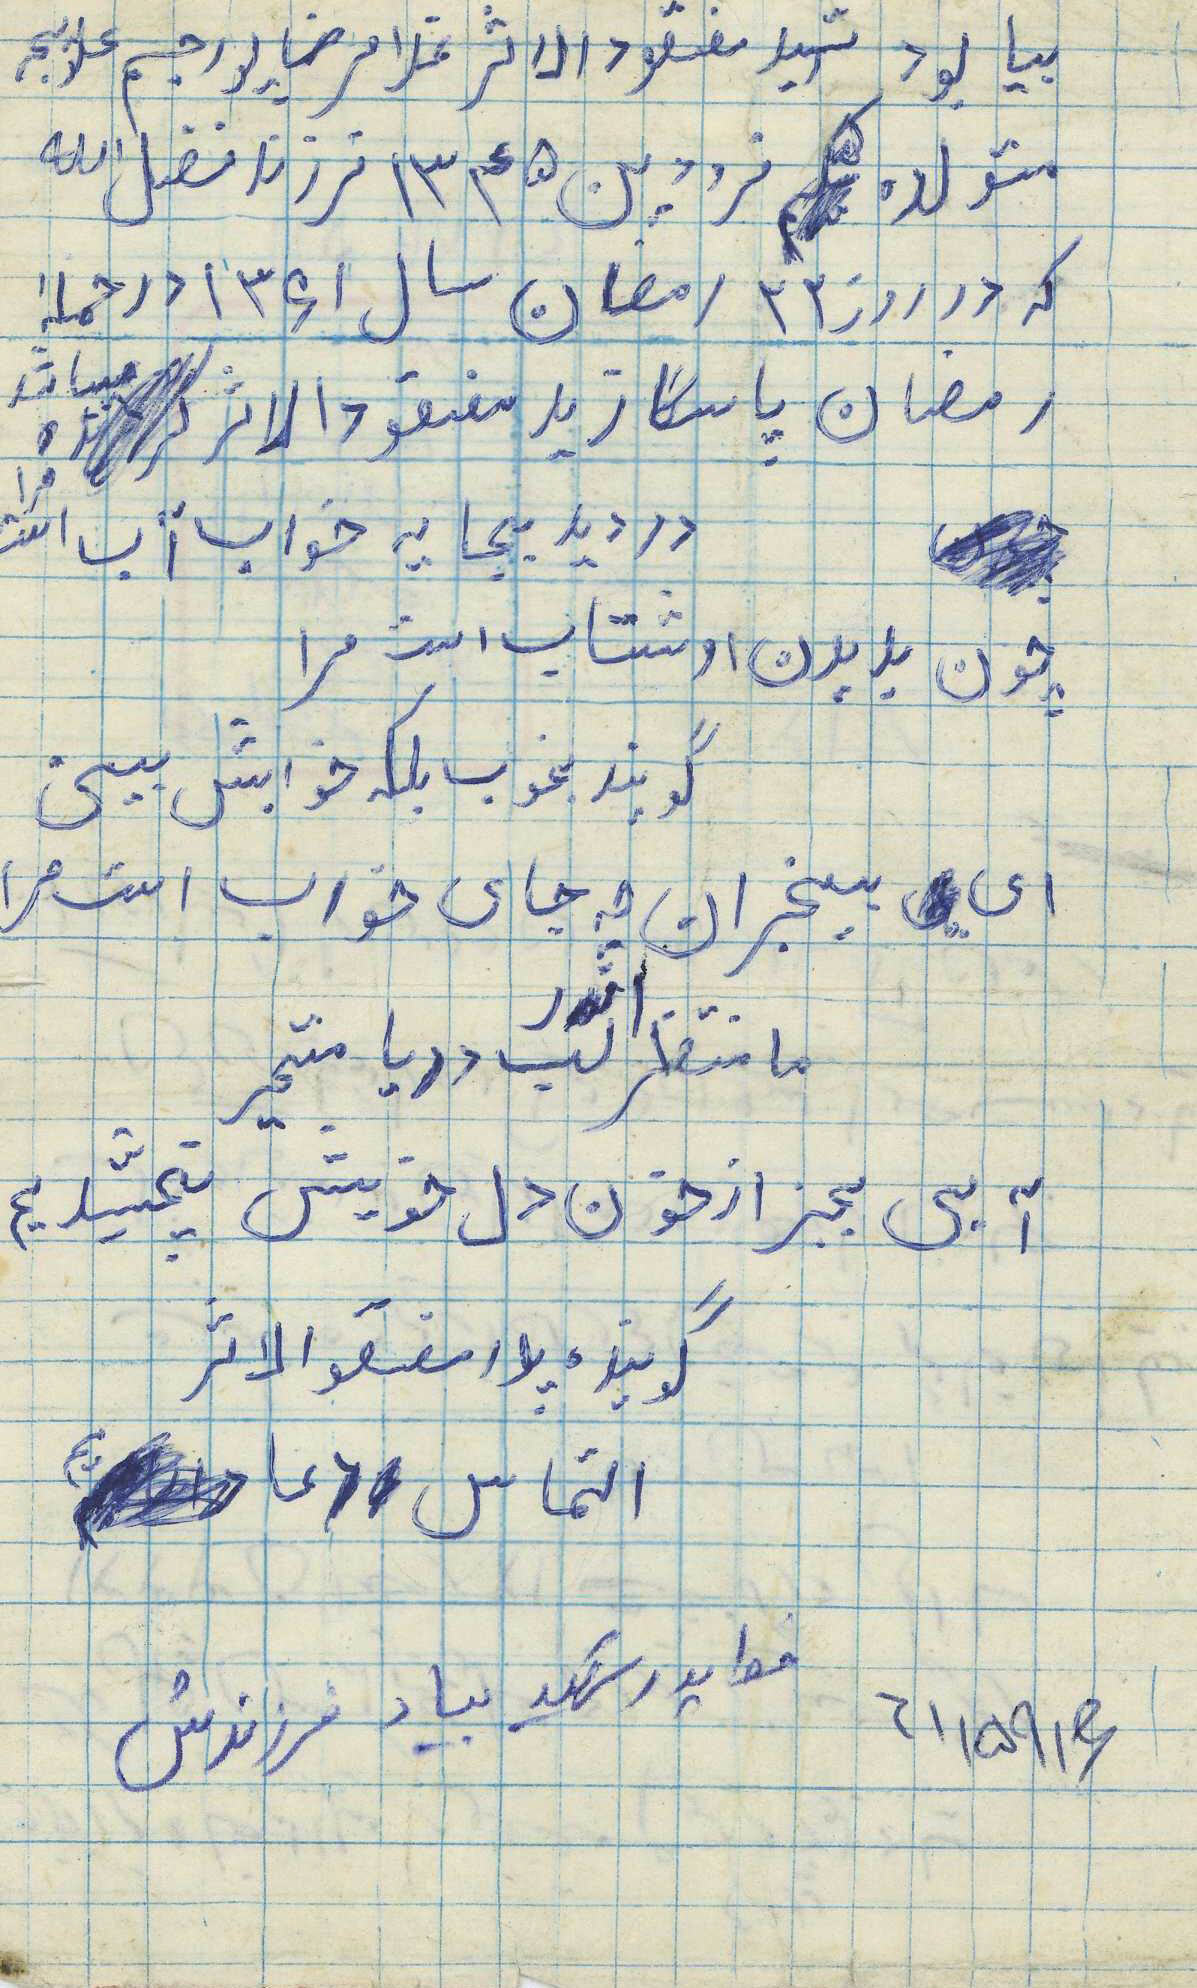 بیا بود شهید مفقود الاثر غلامرضا پور رحیم علاویجه
متولده ۵ فرودین ۱۳۴۵ فرزند فضل الله
که در روز ۲۳ رمضان سال ۱۳۶۱ در حمله
رمضان پاسگا زید مفقود الاثر میباشد
در دیده بجایه خواب آب است مرا
چون بدیدن او شتاب است مرا
گویند بخوب بلکه خوابش ببینی
ای بیخبران چه جای خواب است مرا
ما منتظر اندر لب دریا متحیر
آبی بجز از خون دل خویش نچشیدیم
گوینده پدر مفقوالاثر
التماس دعا
خط پدر شهید بیاد فرزندش